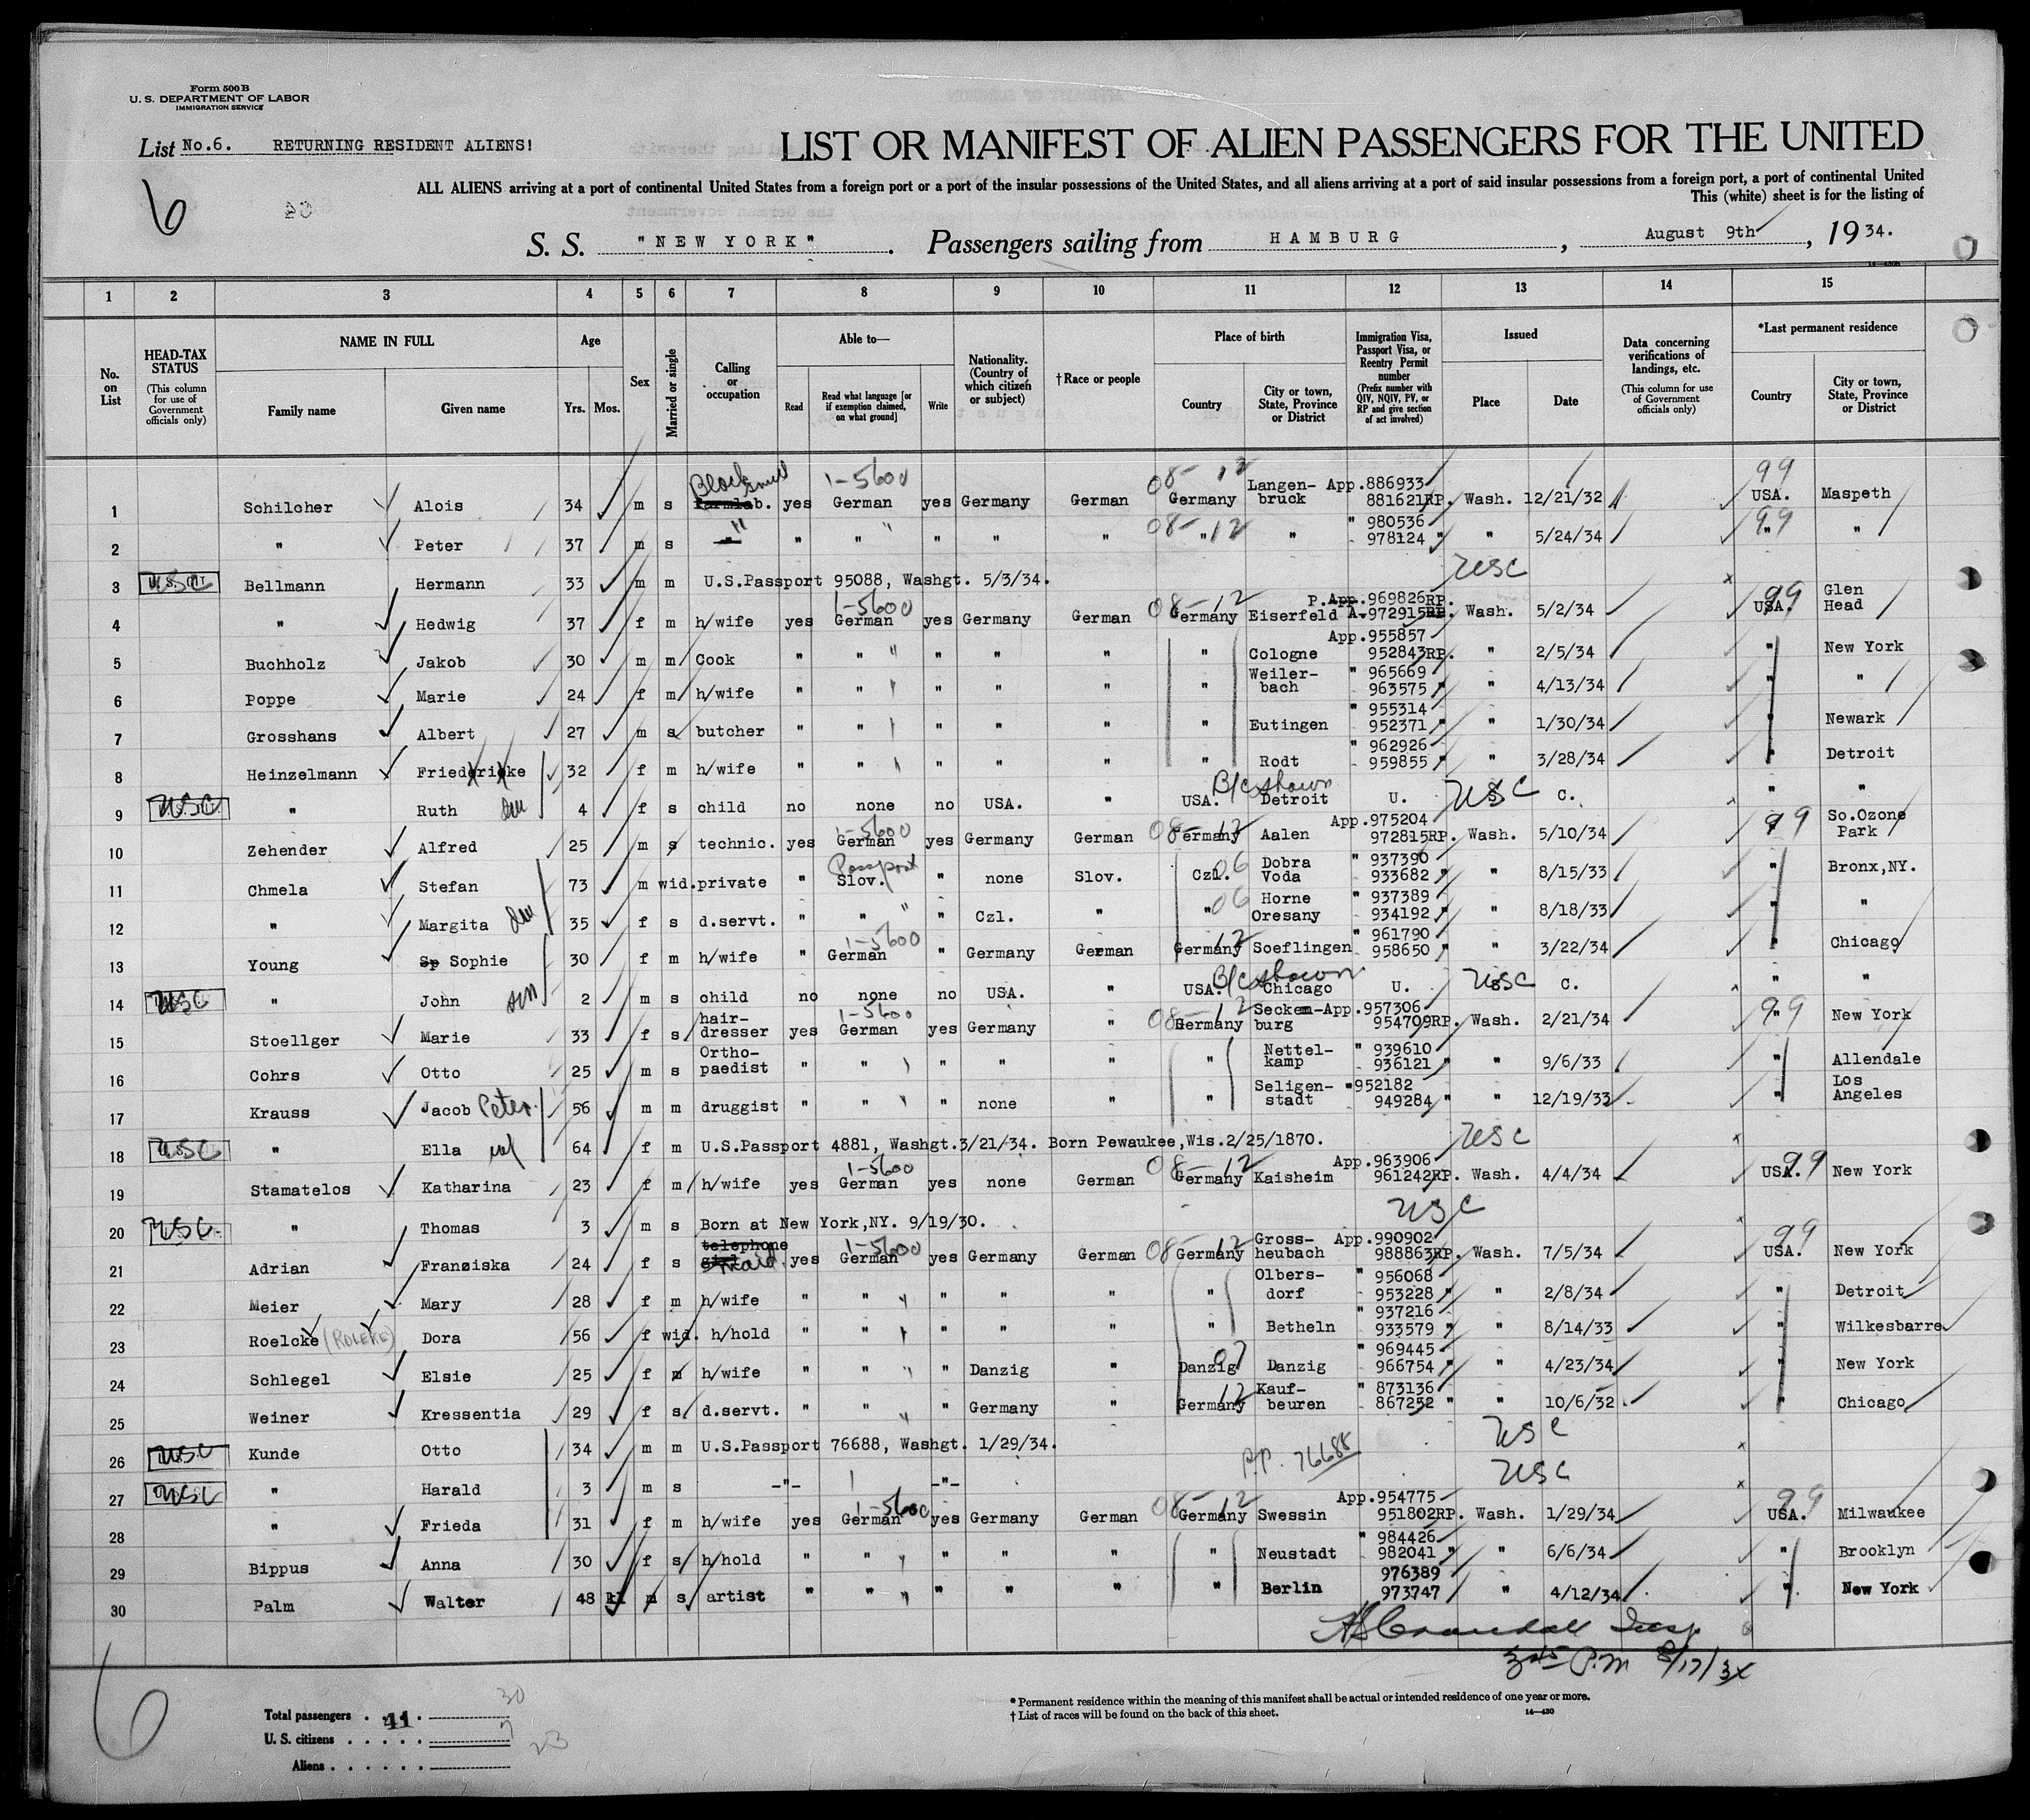 Form 500 B
U. S. DEPARTMENT OF LABOR
IMMIGRATION SERVICE
List No.6. RETURNING RESIDENT ALIENS!
LIST OR MANIFEST OF ALIEN PASSENGERS FOR THE UNITED
6
ALL ALIENS arriving at a port of continental United States from a foreign port or a port of the insular possessions of the United States, and all aliens arriving at a port of said insular possessions from a foreign port, a port of continental United
This (white) sheet is for the listing of
S. S. "NEW YORK". Passengers sailing from HAMBURG, August 9th, 1934.
1 2 3 4 5 6 7 8 9 10 11 12 13 14 15
No. on List
HEAD-TAX STATUS (This column for use of Government officials only)
NAME IN FULL Family name Given name
Age Yrs. Mos.
Sex
Married or single
Calling or occupation
Able to— Read Read what language [or if exemption claimed, on what ground] Write
Nationality. (Country of which citizen or subject)
†Race or people
Place of birth Country City or town, State, Province or District
Immigration Visa, Passport Visa, or Reentry Permit number (Prefix number with QIV, NQIV, PV, or RP and give section of act involved)
Issued Place Date
Data concerning verifications of landings, etc. (This column for use of Government officials only)
*Last permanent residence Country City or town, State, Province or District
1 Schilcher Alois 34 m s Farmlab. Blacksmid yes German 1-5600 yes Germany German 08-12 Germany Langen-bruck App.886933 881621RP. Wash. 12/21/32 99 USA. Maspeth
2 " Peter 37 m s " " " " " " 08-12 " " " 980536 978124 " " 5/24/34 99 " "
3 USC Bellmann Hermann 33 m m U.S.Passport 95088, Washgt. 5/3/34. USC
4 " Hedwig 37 f m h/wife yes German 1-5600 yes Germany German 08-12 Germany Eiserfeld P.App.969826RP. A.972915RP. Wash. 5/2/34 99 USA. Glen Head
5 Buchholz Jakob 30 m m Cook " " " " " " Cologne App.955857 952843RP. " 2/5/34 " New York
6 Poppe Marie 24 f m h/wife " " " " " " Weiler-bach " 965669 963575 " " 4/13/34 " "
7 Grosshans Albert 27 m s butcher " " " " " " Eutingen " 955314 952371 " " 1/30/34 " Newark
8 Heinzelmann Friedericke 32 f m h/wife " " " " " " Rodt " 962926 959855 " " 3/28/34 " Detroit
9 USC " Ruth dau 4 f s child no none no USA. " USA. B/c shown Detroit U. USC S. C. " "
10 Zehender Alfred 25 m s technic. yes German 1-5600 yes Germany German 08-12 Germany Aalen App.975204 972815RP. Wash. 5/10/34 99 " So.Ozone Park
11 Chmela Stefan 73 m wid. private " Slov. Passport " none Slov. Czl. 06 Dobra Voda " 937390 933682 " " 8/15/33 " Bronx,NY.
12 " Margita dau 35 f s d.servt. " " " Czl. " " 06 Horne Oresany " 937389 934192 " " 8/18/33 " "
13 Young Sp Sophie 30 f m h/wife " German 1-5600 " Germany German Germany 12 Soeflingen " 961790 958650 " " 3/22/34 " Chicago
14 USC " John son 2 m s child no none no USA. " USA. B/c shown Chicago U. USC S. C. " "
15 Stoellger Marie 33 f s hair-dresser yes German 1-5600 yes Germany " 08-12 Germany Seckem-burg App.957306 954709RP. Wash. 2/21/34 99 " New York
16 Cohrs Otto 25 m s Ortho-paedist " " " " " " Nettel-kamp " 939610 936121 " " 9/6/33 " Allendale
17 Krauss Jacob Peter 56 m m druggist " " " none " " Seligen-stadt "952182 949284 " " 12/19/33 " Los Angeles
18 USC " Ella wf 64 f m U.S.Passport 4881, Washgt.3/21/34. Born Pewaukee,Wis.2/25/1870. USC
19 Stamatelos Katharina 23 f m h/wife yes German 1-5600 yes none German 08-12 Germany Kaisheim App.963906 961242RP. Wash. 4/4/34 99 USA. New York
20 USC " Thomas 3 m s Born at New York,NY. 9/19/30. USC
21 Adrian Franziska 24 f s telephone girl maid. yes German 1-5600 yes Germany German 08-12 Germany Gross-heubach App.990902 988863RP. Wash. 7/5/34 99 USA. New York
22 Meier Mary 28 f m h/wife " " " " " " Olbers-dorf " 956068 953228 " " 2/8/34 " Detroit
23 Roelcke (ROLEKE) Dora 56 f wid. h/hold " " " " " " Betheln " 937216 933579 " " 8/14/33 " Wilkesbarre
24 Schlegel Elsie 25 f m h/wife " " " Danzig " Danzig 07 Danzig " 969445 966754 " " 4/23/34 " New York
25 Weiner Kressentia 29 f s d.servt. " " " Germany " Germany 12 Kauf-beuren " 873136 867252 " " 10/6/32 " Chicago
26 USC Kunde Otto 34 m m U.S.Passport 76688, Washgt. 1/29/34. USC
27 USC " Harald 3 m s -"- -"- P.P. 76688 USC
28 " Frieda 31 f m h/wife yes German 1-5600 yes Germany German 08-12 Germany Swessin App.954775 951802RP. Wash. 1/29/34 99 USA. Milwaukee
29 Bippus Anna 30 f s h/hold " " " " " " Neustadt " 984426 982041 " " 6/6/34 " Brooklyn
30 Palm Walter 48 m s artist " " " " " " Berlin 976389 973747 " 4/12/34 " New York
Insp.
3 45 P.M 8/17/34
6
Total passengers 41 30
U. S. citizens 7
Aliens 23
* Permanent residence within the meaning of this manifest shall be actual or intended residence of one year or more.
† List of races will be found on the back of this sheet.
14—430